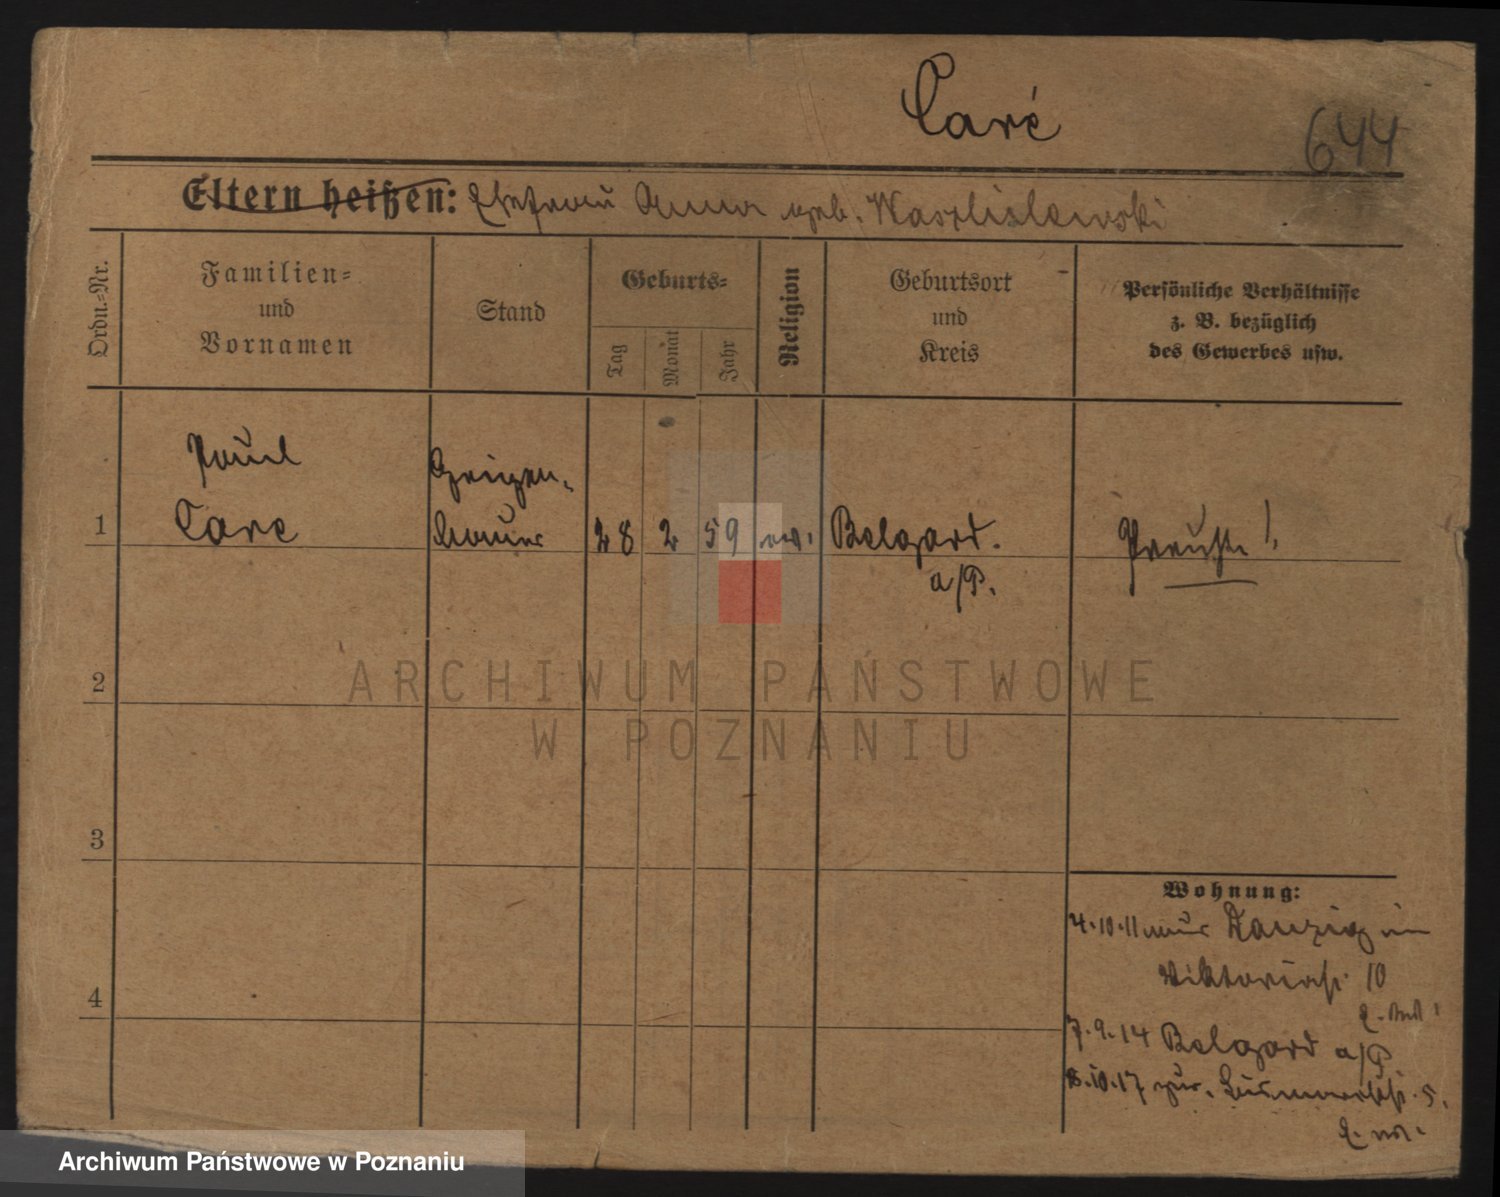 Caré
644
Eltern heißen: Ehefrau Anna geb. Wastlislewski
Ordn.-Nr.
Familien-
und
Vornamen
Stand
Geburts-
Tag
Monat
Jahr
Religion
Geburtsort
und
Kreis
Persönliche Verhältnisse
z. B. bezüglich
des Gewerbes usw.
1
Paul
Care
Geigen-
bauer
28
2
59
ev.
Belgard.
a/P.
Preuße!
2
ARCHIWUM PAŃSTWOWE
W POZNANIU
3
4
Wohnung:
4.10.11 aus Danzig in
Viktoriastr. 10
7.9.14 Belgard a/P
8.10.17 zur. Bismarckstr. 5.
Archiwum Państwowe w Poznaniu